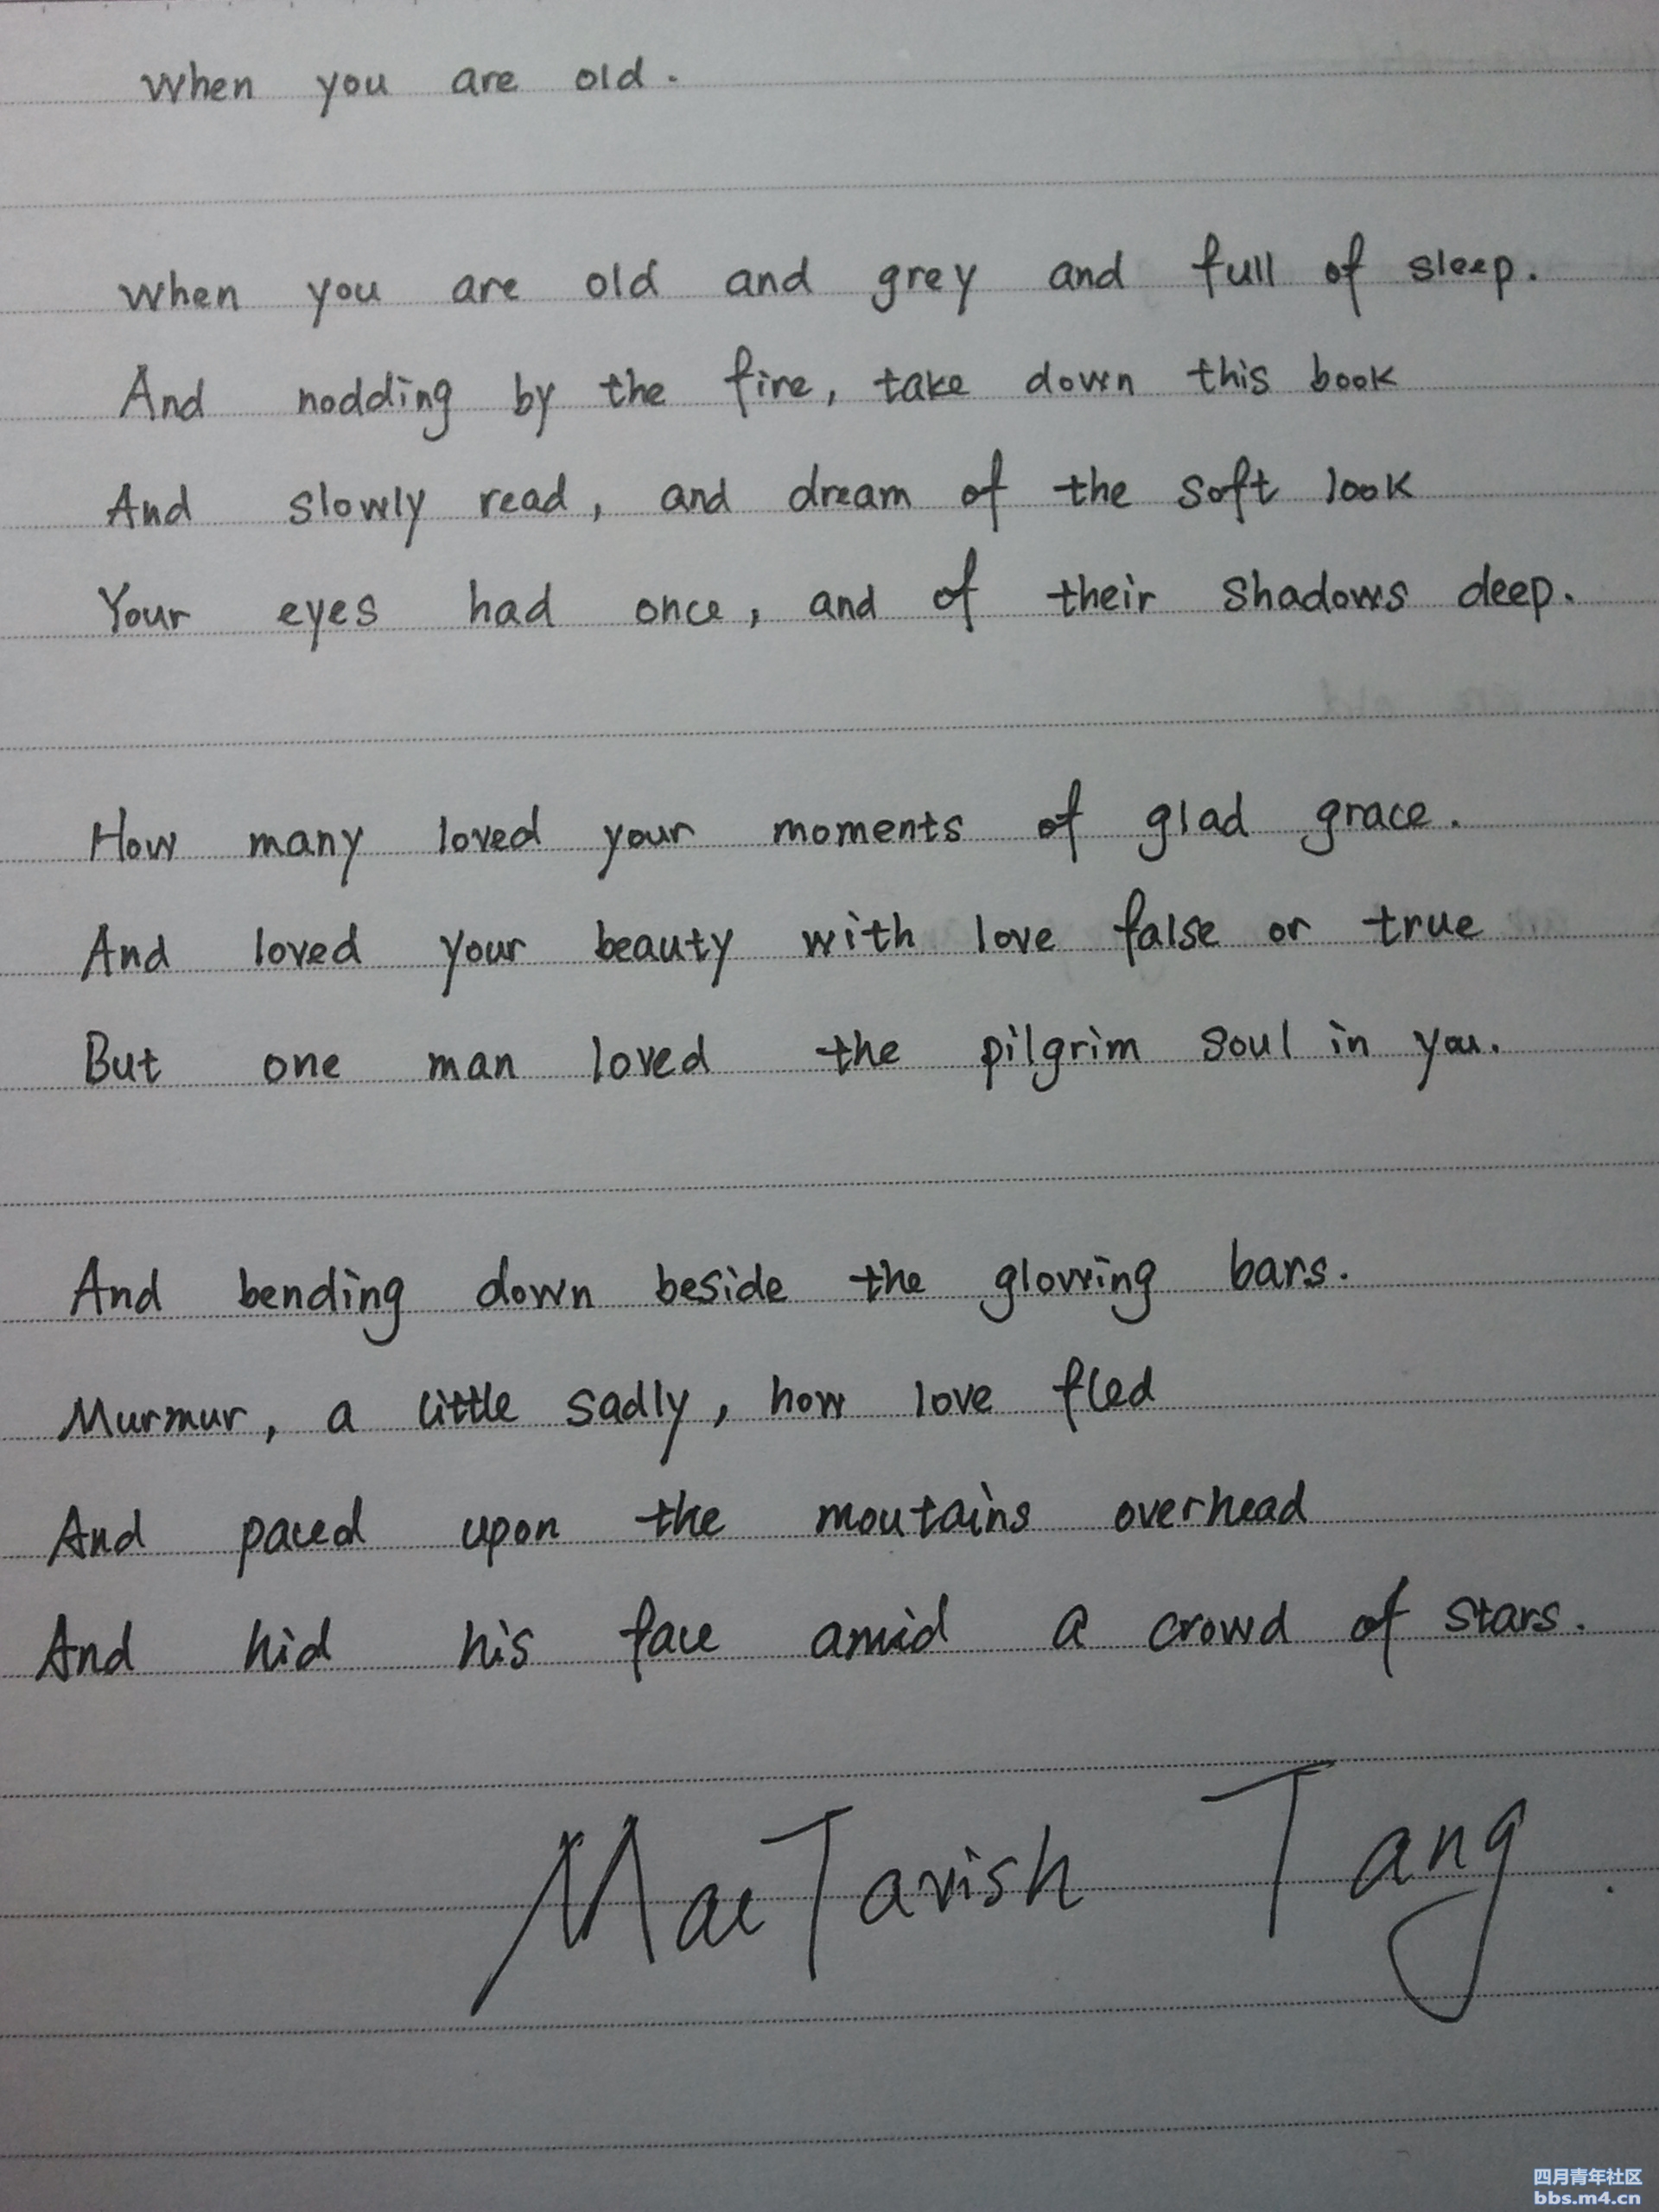 When you are old.
When you are old and grey and full of sleep.
And nodding by the fire, take down this book
And slowly read, and dream of the soft look
Your eyes had once, and of their shadows deep.
How many loved your moments of glad grace.
And loved your beauty with love false or true
But one man loved the pilgrim soul in you.
And bending down beside the glowing bars.
Murmur, a little sadly, how love fled
And paced upon the moutains overhead
And hid his face amid a crowd of stars.
MacTavish Tang.
四月青年社区
bbs.m4.cn